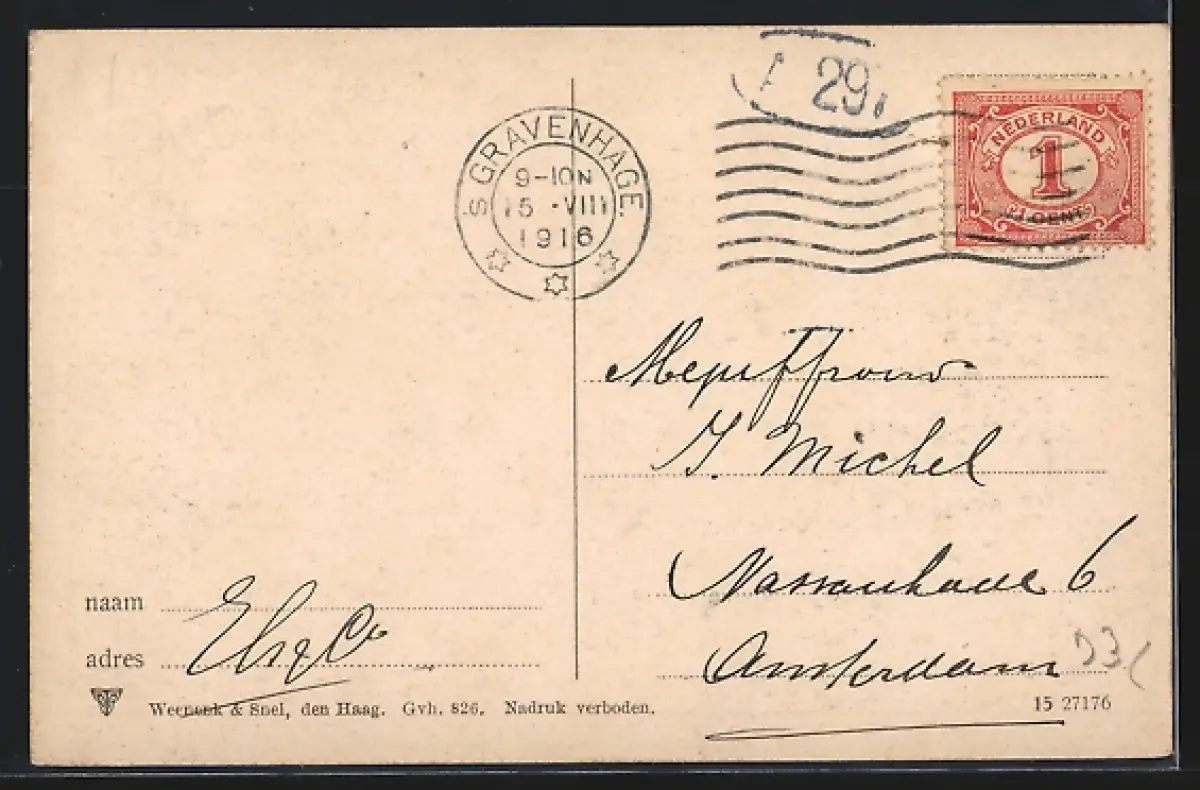 29
'S GRAVENHAGE.
9-10N
15 .VIII
1916
NEDERLAND
1
1 CENT
Mejuffrouw
J. Michel
Nassaukade 6
Amsterdam
naam
adres
Weenenk & Snel, den Haag. Gvh. 826. Nadruk verboden.
15 27176